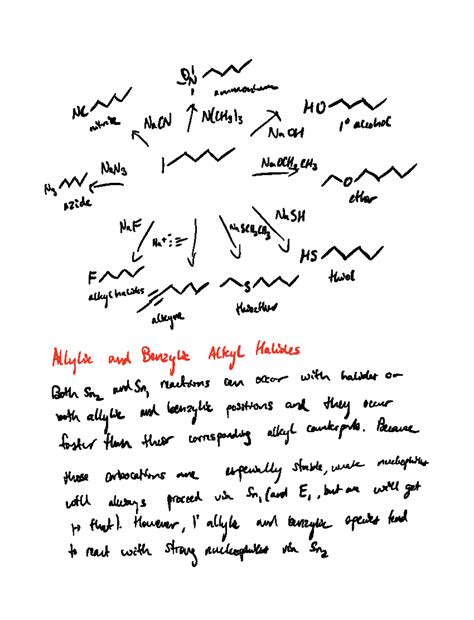 ⊕N
ammonium
NC
nitrile
NaCN
N(CH3)3
HO
1° alcohol
NaOH
I
NaN3
N3
azide
NaOCH2CH3
O
ether
NaF
Na+ :≡
NaSCH2CH3
NaSH
F
alkyl halides
alkyne
S
thioether
HS
thiol
Allylic and Benzylic Alkyl Halides
Both SN2 and SN1 reactions can occur with halides on
both allylic and benzylic positions and they occur
faster than their corresponding alkyl counterparts. Because
these carbocations are especially stable, weak nucleophiles
will always proceed via SN1 (and E1, but we will get
to that). However, 1° allylic and benzylic species tend
to react with strong nucleophiles via SN2